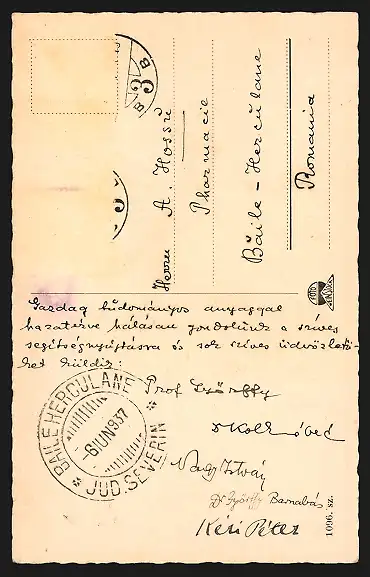 Herrn A. Hossu
Pharmacie
Băile-Herculane
Romania
Gazdag tudományos anyaggal
hazatérve hálásan gondolunk a szíves
segítségnyújtásra és sok szíves üdvözlete-
ket küldik:
Prof Györffy
Nagy István
Dr Györffy Barnabás
Kési Péter
BAILE HERCULANE
-6 IUN 937
* JUD. SEVERIN *
B 3 B
1096. sz.